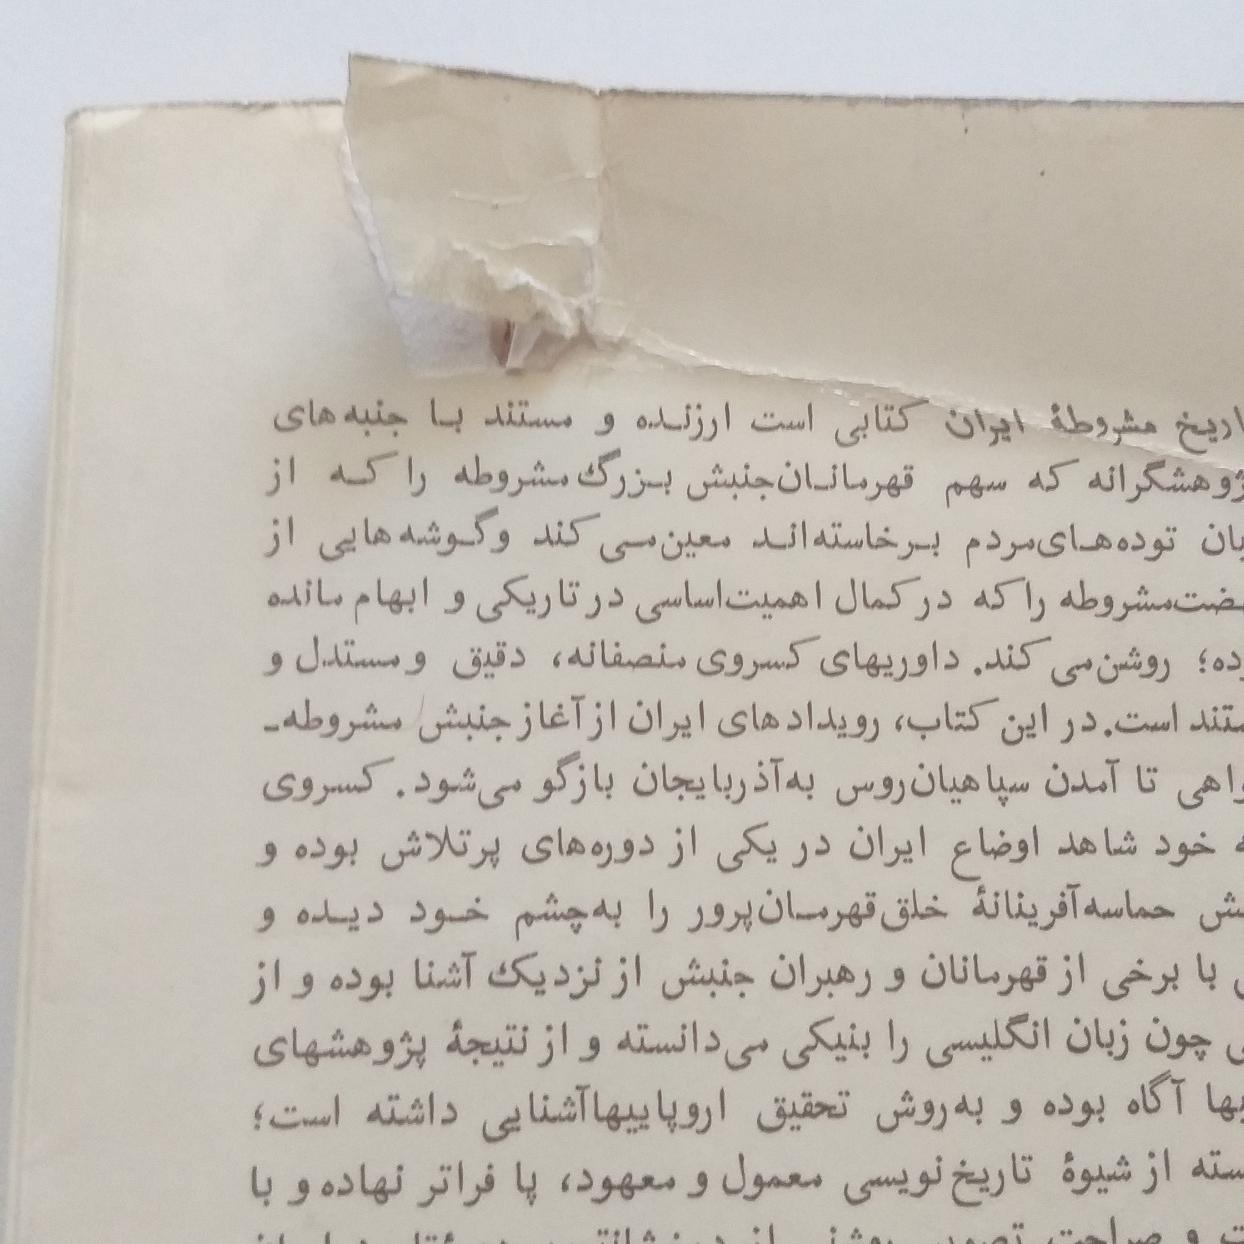 اریخ مشروطهٔ ایران کتابی است ارزنده و مستند با جنبه‌های
ژوهشگرانه که سهم قهرمانان جنبش بزرگ مشروطه را که از
بان توده‌های مردم برخاسته‌اند معین می کند و گوشه‌هایی از
ضت مشروطه را که در کمال اهمیت اساسی در تاریکی و ابهام مانده
ده؛ روشن می کند. داوریهای کسروی منصفانه، دقیق و مستدل و
ستند است. در این کتاب، رویدادهای ایران از آغاز جنبش مشروطه-
واهی تا آمدن سپاهیان روس به‌آذربایجان بازگو می‌شود. کسروی
ه خود شاهد اوضاع ایران در یکی از دوره‌های پرتلاش بوده و
ش حماسه‌آفرینانهٔ خلق قهرمان‌پرور را به‌چشم خود دیده و
با برخی از قهرمانان و رهبران جنبش از نزدیک آشنا بوده و از
چون زبان انگلیسی را بنیکی می‌دانسته و از نتیجهٔ پژوهشهای
بها آگاه بوده و به‌روش تحقیق اروپاییها آشنایی داشته است؛
سته از شیوهٔ تاریخ نویسی معمول و معهود، پا فراتر نهاده و با